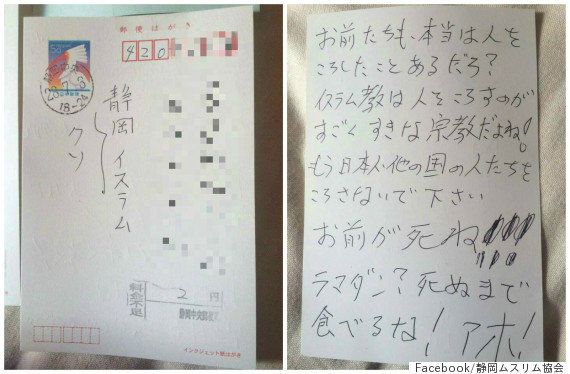 郵便はがき
420
18-24
静岡イスラム
クソ
料金不足
2円
インクジェット紙はがき
お前たちも、本当は人を
ころしたことあるだろ?
イスラム教は人をころすのが
すごくすきな宗教だよね!
もう日本人、他の国の人たちを
ころさないで下さい
お前が死ね!!!
ラマダン?死ぬまで
食べるな!アホ!
Facebook/静岡ムスリム協会